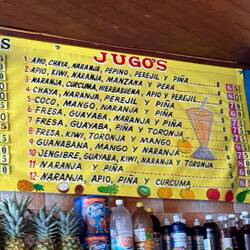 JUGO'S
1 - APIO, CHAYA, NARANJA, PEPINO, PEREJIL Y PIÑA
2 - APIO, KIWI, NARANJA, MANZANA Y PERA
3 - NARANJA, CURCUMA, HIERBABUENA, APIO Y PEREJIL
4 - CHAYA, NARANJA, PEREJIL Y PIÑA
5 - COCO, MANGO, NARANJA Y PIÑA
6 - FRESA, GUAYABA, MANGO Y NARANJA
7 - FRESA, GUAYABA, PIÑA Y TORONJA
8 - FRESA, KIWI, TORONJA Y MANGO
9 - GUANABANA, MANGO Y NARANJA
10 - JENGIBRE, GUAYABA, KIWI, NARANJA Y TORONJA
11 - NARANJA Y PIÑA
12 - NARANJA, APIO, PIÑA Y CURCUMA